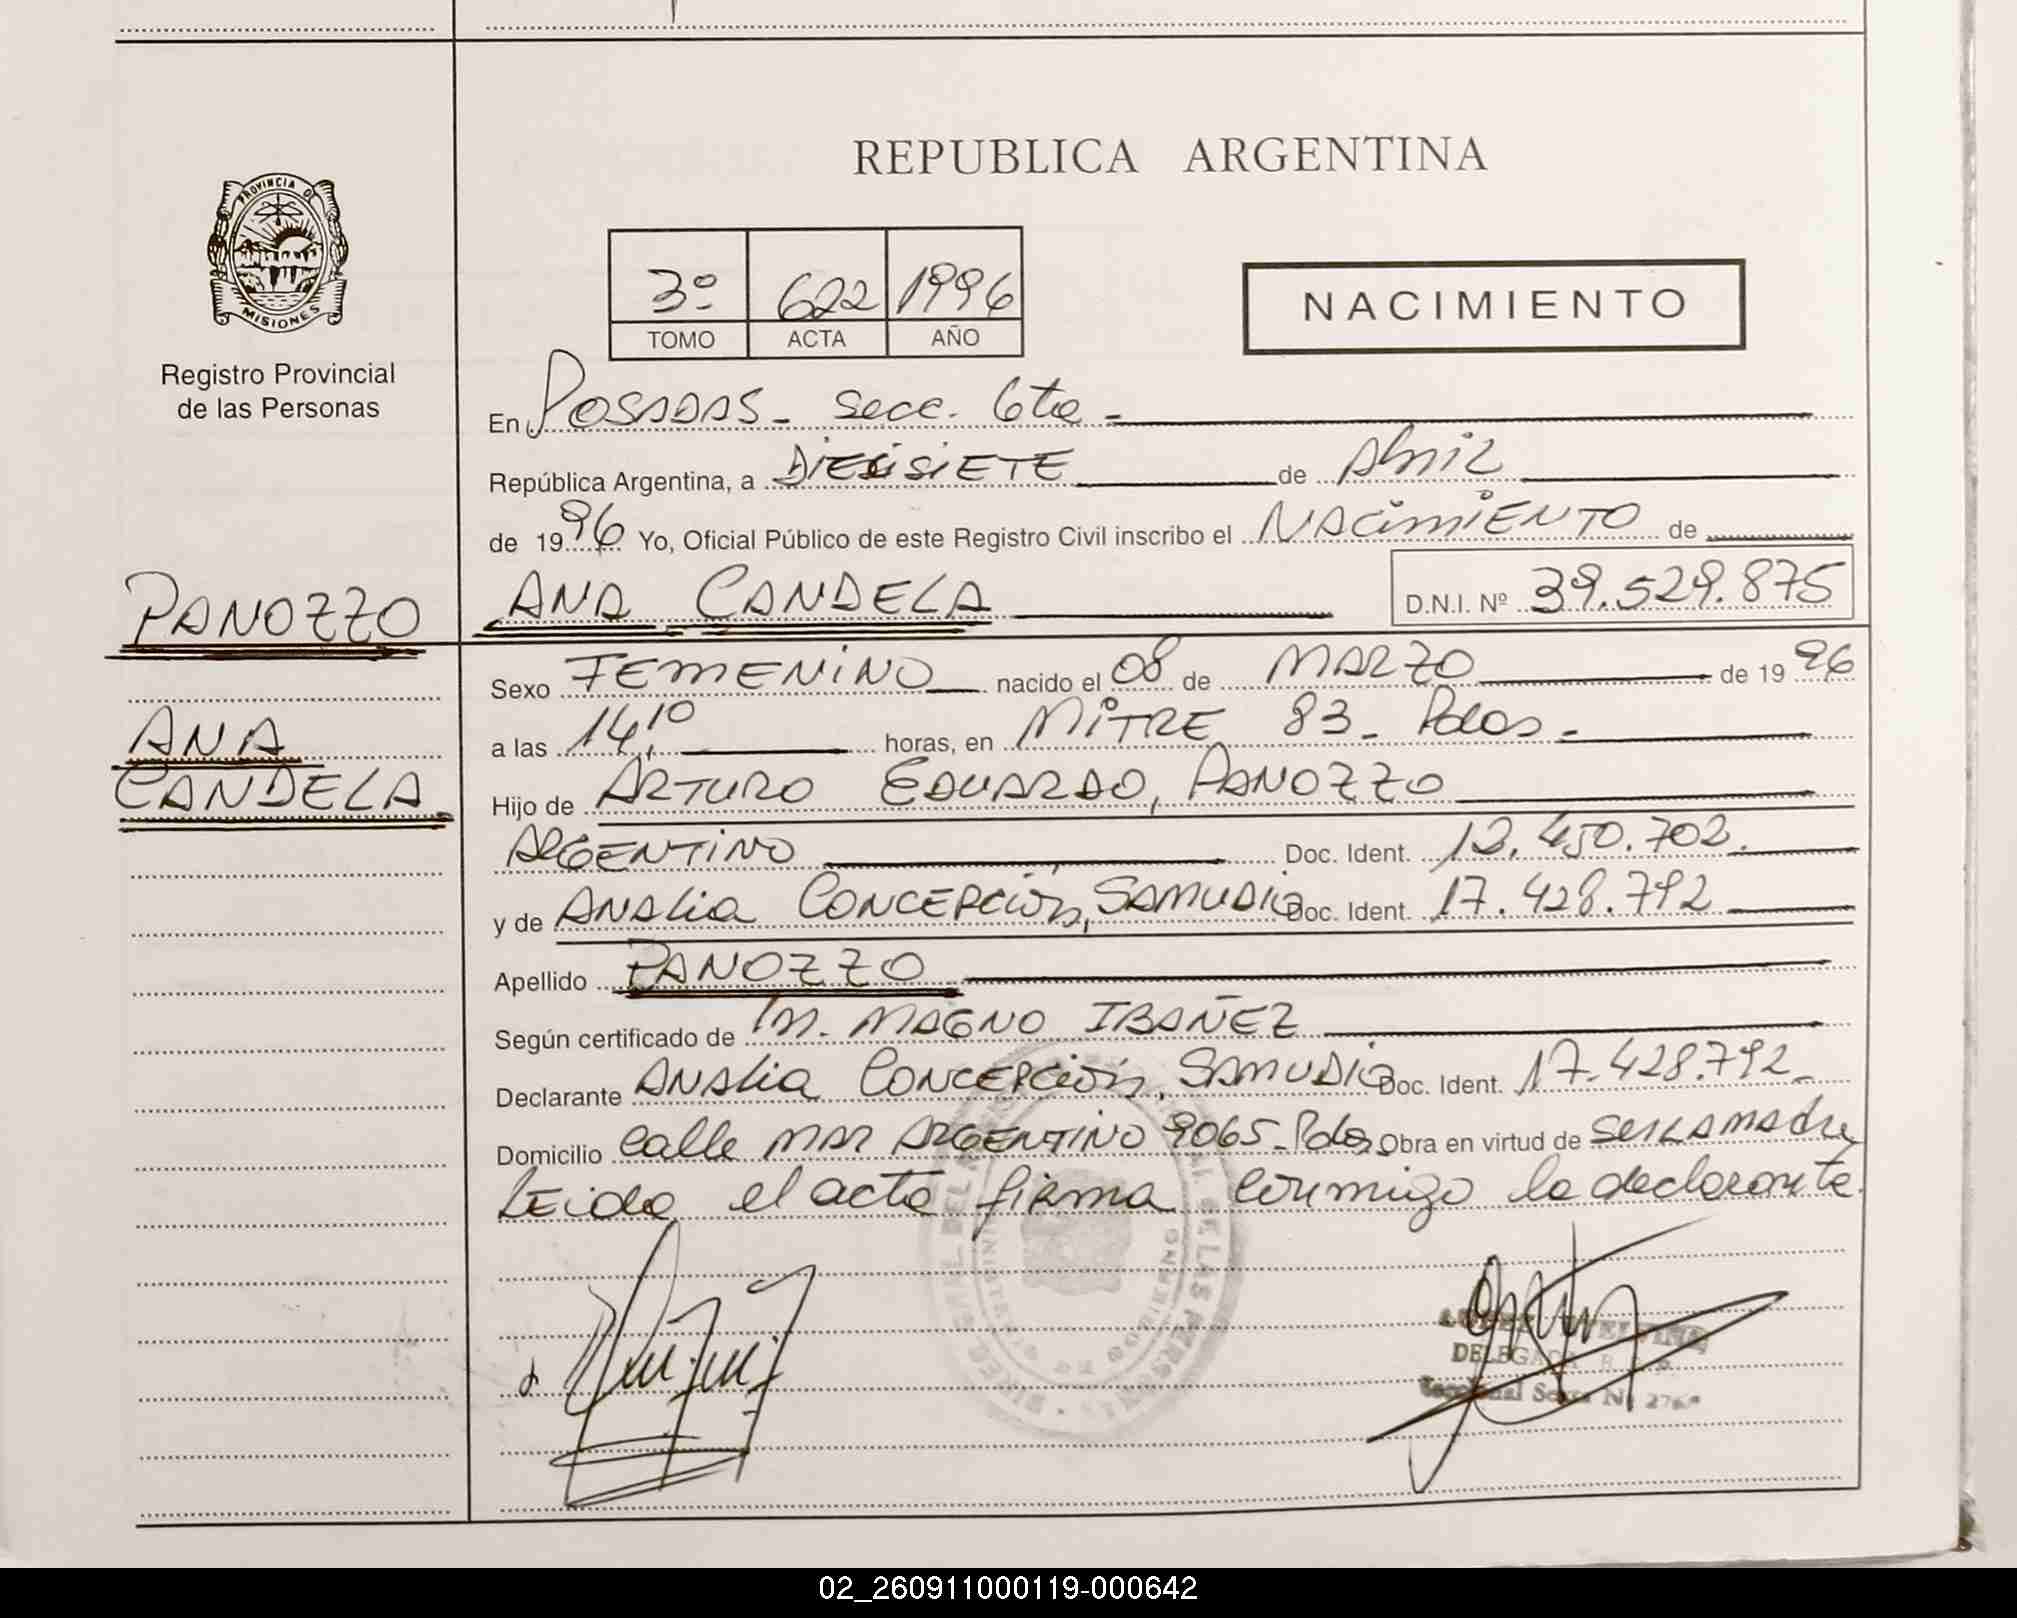 REPUBLICA ARGENTINA
PROVINCIA DE
MISIONES
Registro Provincial
de las Personas
3º 622 1996
TOMO ACTA AÑO
NACIMIENTO
En POSADAS - Secc. 6ta -
República Argentina, a DIECISIETE de Abril
de 1996 Yo, Oficial Público de este Registro Civil inscribo el NACIMIENTO de
PANOZZO
ANA CANDELA D.N.I. Nº 39.529.875
Sexo FEMENINO nacido el 08 de MARZO de 1996
ANA
a las 14,10 horas, en MITRE 83 - Pdas -
CANDELA
Hijo de ARTURO EDUARDO, PANOZZO
ARGENTINO Doc. Ident. 12.450.702.
y de ANALIA CONCEPCIÓN, SAMUDIO Doc. Ident. 17.428.792
Apellido PANOZZO
Según certificado de M. MAGNO IBAÑEZ
Declarante ANALIA CONCEPCIÓN, SAMUDIO Doc. Ident. 17.428.792
Domicilio Calle MAR ARGENTINO 9065 - Pdas Obra en virtud de SER LA MADRE
LEIDA el acta firma conmigo la declarante.
DELEGADA
02_260911000119-000642